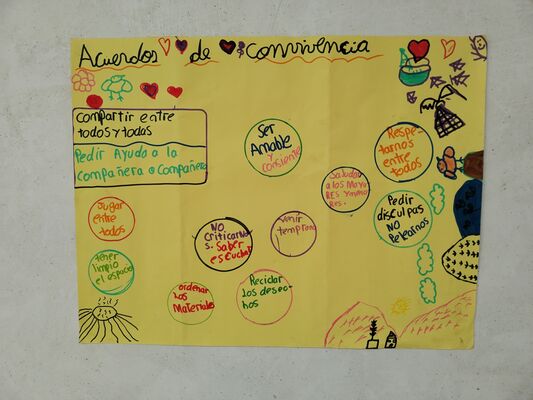 Acuerdos de Convivencia
Compartir entre
todos y todas
Pedir Ayuda a la
Compañera o Compañero
Ser
Amable
y
consiente
Respe-
tarnos
entre
todos
Saludar
a los Mayo-
RES
Pedir
disculpas
NO
Pelearnos
Jugar
entre
todos
NO
Criticarno
s. Saber
escuchar
Venir
temprano
tener
limpio
el espacio
ordenar
los
Materiales
Reciclar
los desec-
hos